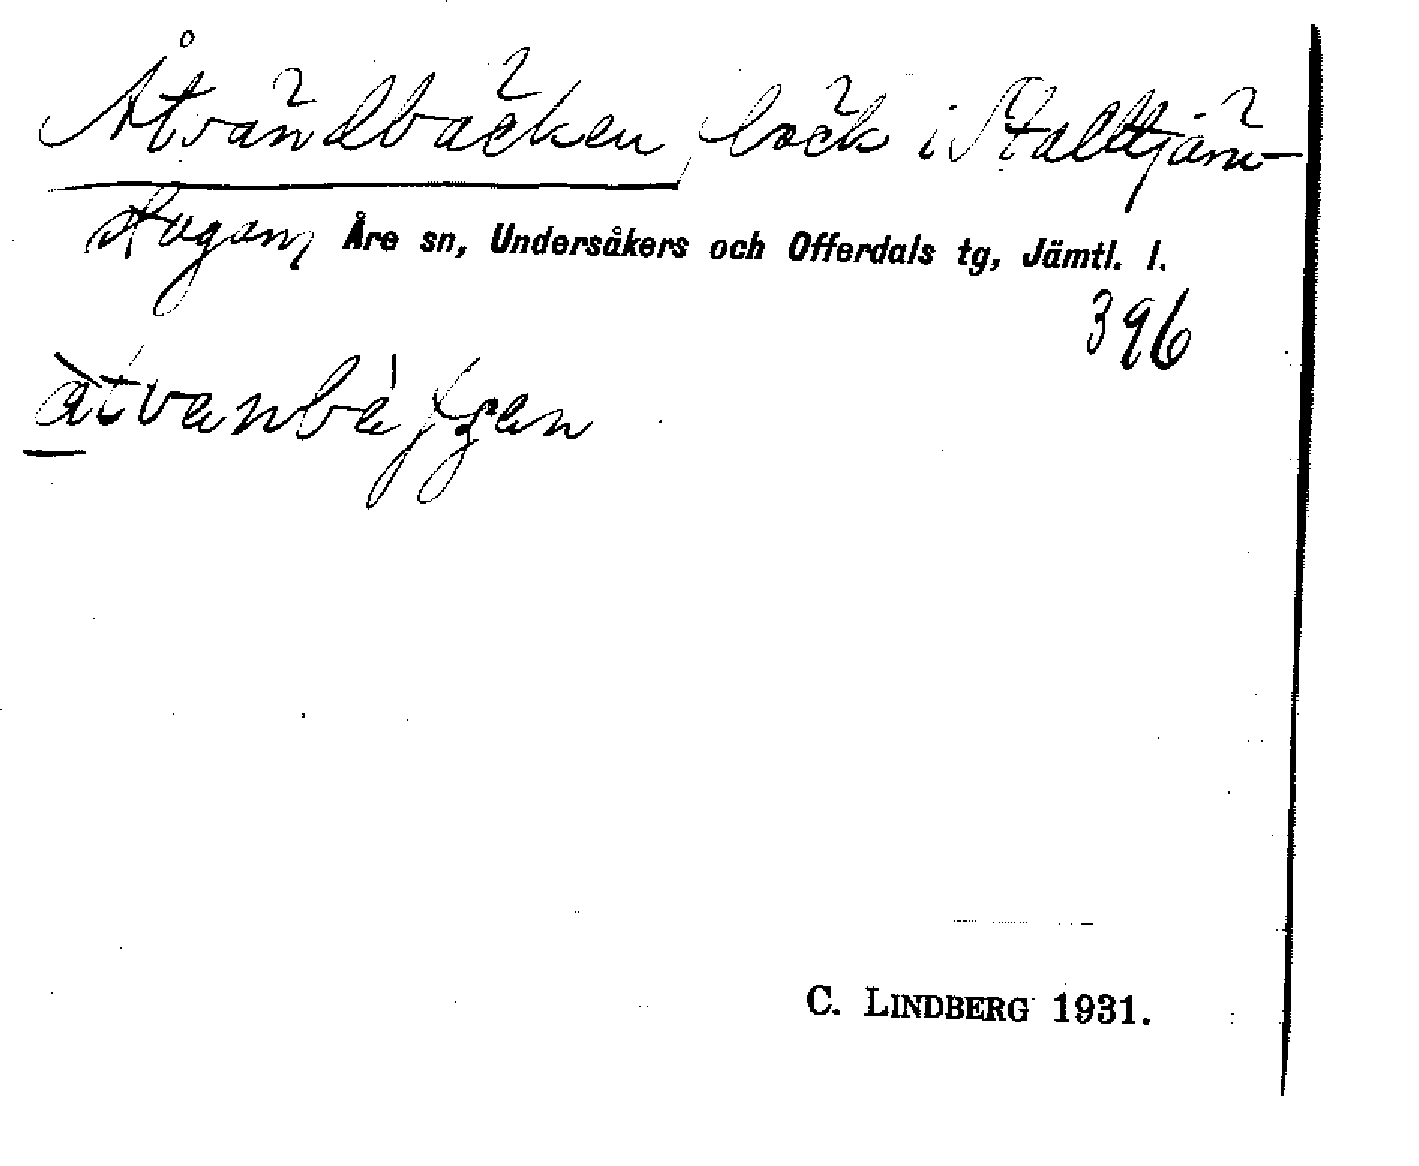 Åtvändbäcken, bäck i Stalltjärn-
stugan, Åre sn, Undersåkers och Offerdals tg, Jämtl. l.
396
C. LINDBERG 1931.